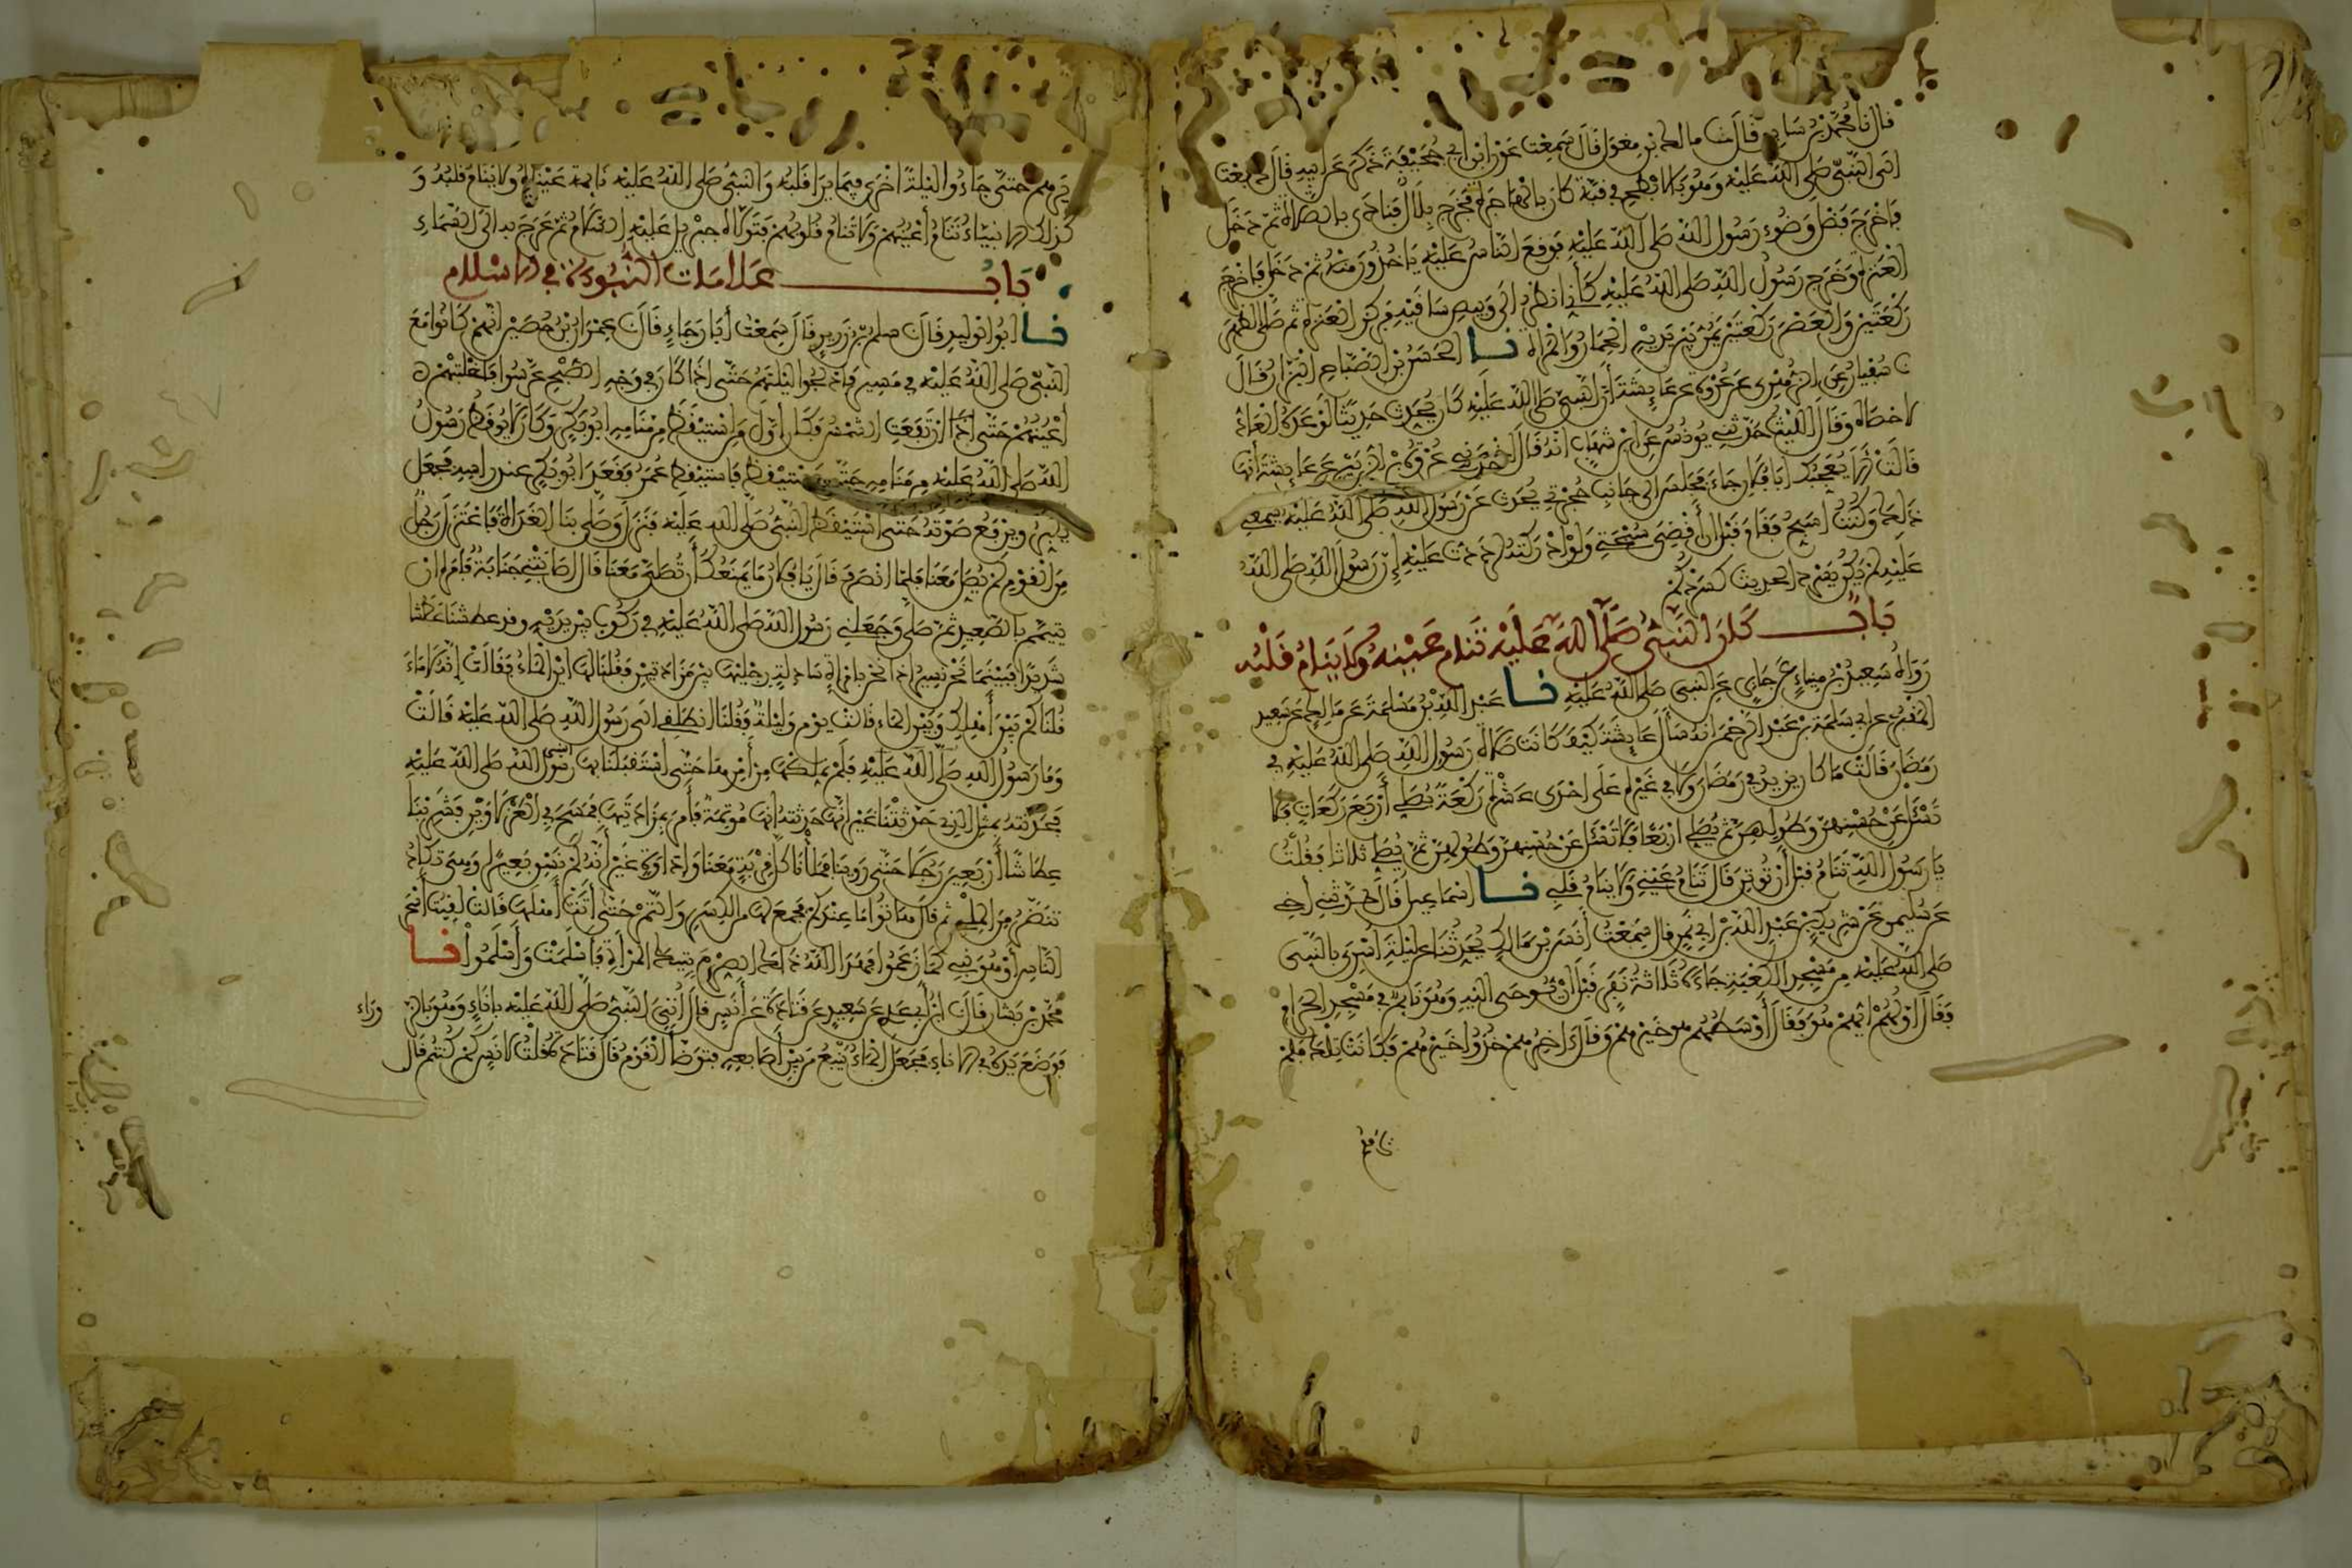 قال نا محمد بن سابق قال نا مالك بن مغول قال سمعت عون ابن أبي جحيفة ذكر عن ابيه قال دفعت
الى النبي صلى الله عليه وهو بالابطح في قبة كان بالهاجرة فخرج بلال فنادى بالصلاة ثم دخل
فاخرج فضل وضوء رسول الله صلى الله عليه فوقع الناس عليه ياخذون منه ثم دخل فاخرج
العنزة وخرج رسول الله صلى الله عليه كأني انظر الى وبيص ساقيه فركز العنزة ثم صلى الظهر
ركعتين والعصر ركعتين يمر بين يديه الحمار والمرأة نا الحسن بن الصباح البزار قال
نا سفيان عن الزهري عن عروة عن عايشة أن النبي صلى الله عليه كان يحدث حديثا لو عده العاد
لاحصاه وقال الليث حدثني يونس عن ابن شهاب انه قال أخبرني عروة بن الزبير عن عايشة أنها
قالت الا يعجبك ابا فلان جاء فجلس الى جانب حجرتي يحدث عن رسول الله صلى الله عليه يسمعني
ذلك وكنت اسبح فقام قبل أن أقضي سبحتي ولو ادركته لرددت عليه إن رسول الله صلى الله
عليه لم يكن يسرد الحديث كسردكم
باب كان النبي صلى الله عليه تنام عينه ولا ينام قلبه
رواه سعيد بن ميناء عن جابر عن النبي صلى الله عليه نا عبد الله بن مسلمة عن مالك عن سعيد
المقبري عن ابي سلمة بن عبد الرحمن انه سأل عايشة كيف كانت صلاة رسول الله صلى الله عليه في
رمضان قالت ما كان يزيد في رمضان ولا في غيره على احدى عشرة ركعة يصلي أربع ركعات فلا
تسئل عن حسنهن وطولهن ثم يصلي اربعا فلا تسئل عن حسنهن وطولهن ثم يصلي ثلاثا فقلت
يا رسول الله تنام قبل أن توتر قال تنام عيني ولا ينام قلبي نا اسماعيل قال حدثني أخي
عن سليمن عن شريك بن عبد الله بن ابي نمر قال سمعت أنس بن مالك يحدثنا عن ليلة أسري بالنبي
صلى الله عليه من مسجد الكعبة جاءه ثلاثة نفر قبل أن يوحى اليه وهو نائم في مسجد الحرام
فقال اولهم ايهم هو فقال أوسطهم هو خيرهم وقال اخرهم خذوا خيرهم فكانت تلك فلم
يرهم حتى جاءوا ليلة اخرى فيما يرا قلبه والنبي صلى الله عليه نايمة عيناه ولا ينام قلبه و
كذلك الانبياء تنام أعينهم ولا تنام قلوبهم فتولاه جبريل عليه السلام ثم عرج به الى السماء
باب علامات النبوة في الاسلام
نا ابو الوليد قال نا سلم بن زرير قال سمعت أبا رجاء قال نا عمران بن حصين انهم كانوا مع
النبي صلى الله عليه في مسير فادلجوا ليلتهم حتى اذا كان في وجه الصبح عرسوا فغلبتهم
أعينهم حتى اذا ارتفعت الشمس فكان اول من استيقظ من منامه ابو بكر وكان لا يوقظ رسول
الله صلى الله عليه من منامه حتى يستيقظ فاستيقظ عمر فقعد ابو بكر عند راسه فجعل
يكبر ويرفع صوته حتى استيقظ النبي صلى الله عليه فنزل وصلى بنا الغداة فاعتزل رجل
من القوم لم يصل معنا فلما انصرف قال يا فلان ما يمنعك أن تصلي معنا قال اصابتني جنابة فامره ان
يتيمم بالصعيد ثم صلى وجعلني رسول الله صلى الله عليه في ركوب بين يديه وقد عطشنا عطشا
شديدا فبينما نحن نسير اذا نحن بامرأة سادلة رجليها بين مزادتين فقلنا لها اين الماء فقالت إنه لا ماء
قلنا كم بين أهلك وبين الماء قالت يوم وليلة فقلنا انطلقي الى رسول الله صلى الله عليه قالت
وما رسول الله صلى الله عليه فلم نملكها من أمرها حتى استقبلنا بها رسول الله صلى الله عليه
فحدثته بمثل الذي حدثتنا غير انها حدثته انها موتمة فأمر بمزادتيها فمسح في العزلاوين فشربنا
عطاشا أربعين رجلا حتى روينا فملأنا كل قربة معنا واداوة غير أنه لم نسق بعيرا وهي تكاد
تنض من الملء ثم قال هاتوا ما عندكم فجمع لها من الكسر والتمر حتى أتت أهلها قالت لقيت أسحر
الناس أو هو نبي كما زعموا فهدا الله ذلك الصرم بتيك المرأة فاسلمت وأسلموا نا
محمد بن بشار قال نا ابن أبي عدي عن سعيد عن قتادة عن أنس قال أتي النبي صلى الله عليه باناء وهو بالزوراء
فوضع يده في الاناء فجعل الماء ينبع من بين أصابعه فتوضأ القوم قال قتادة قلت لانس كم كنتم قال